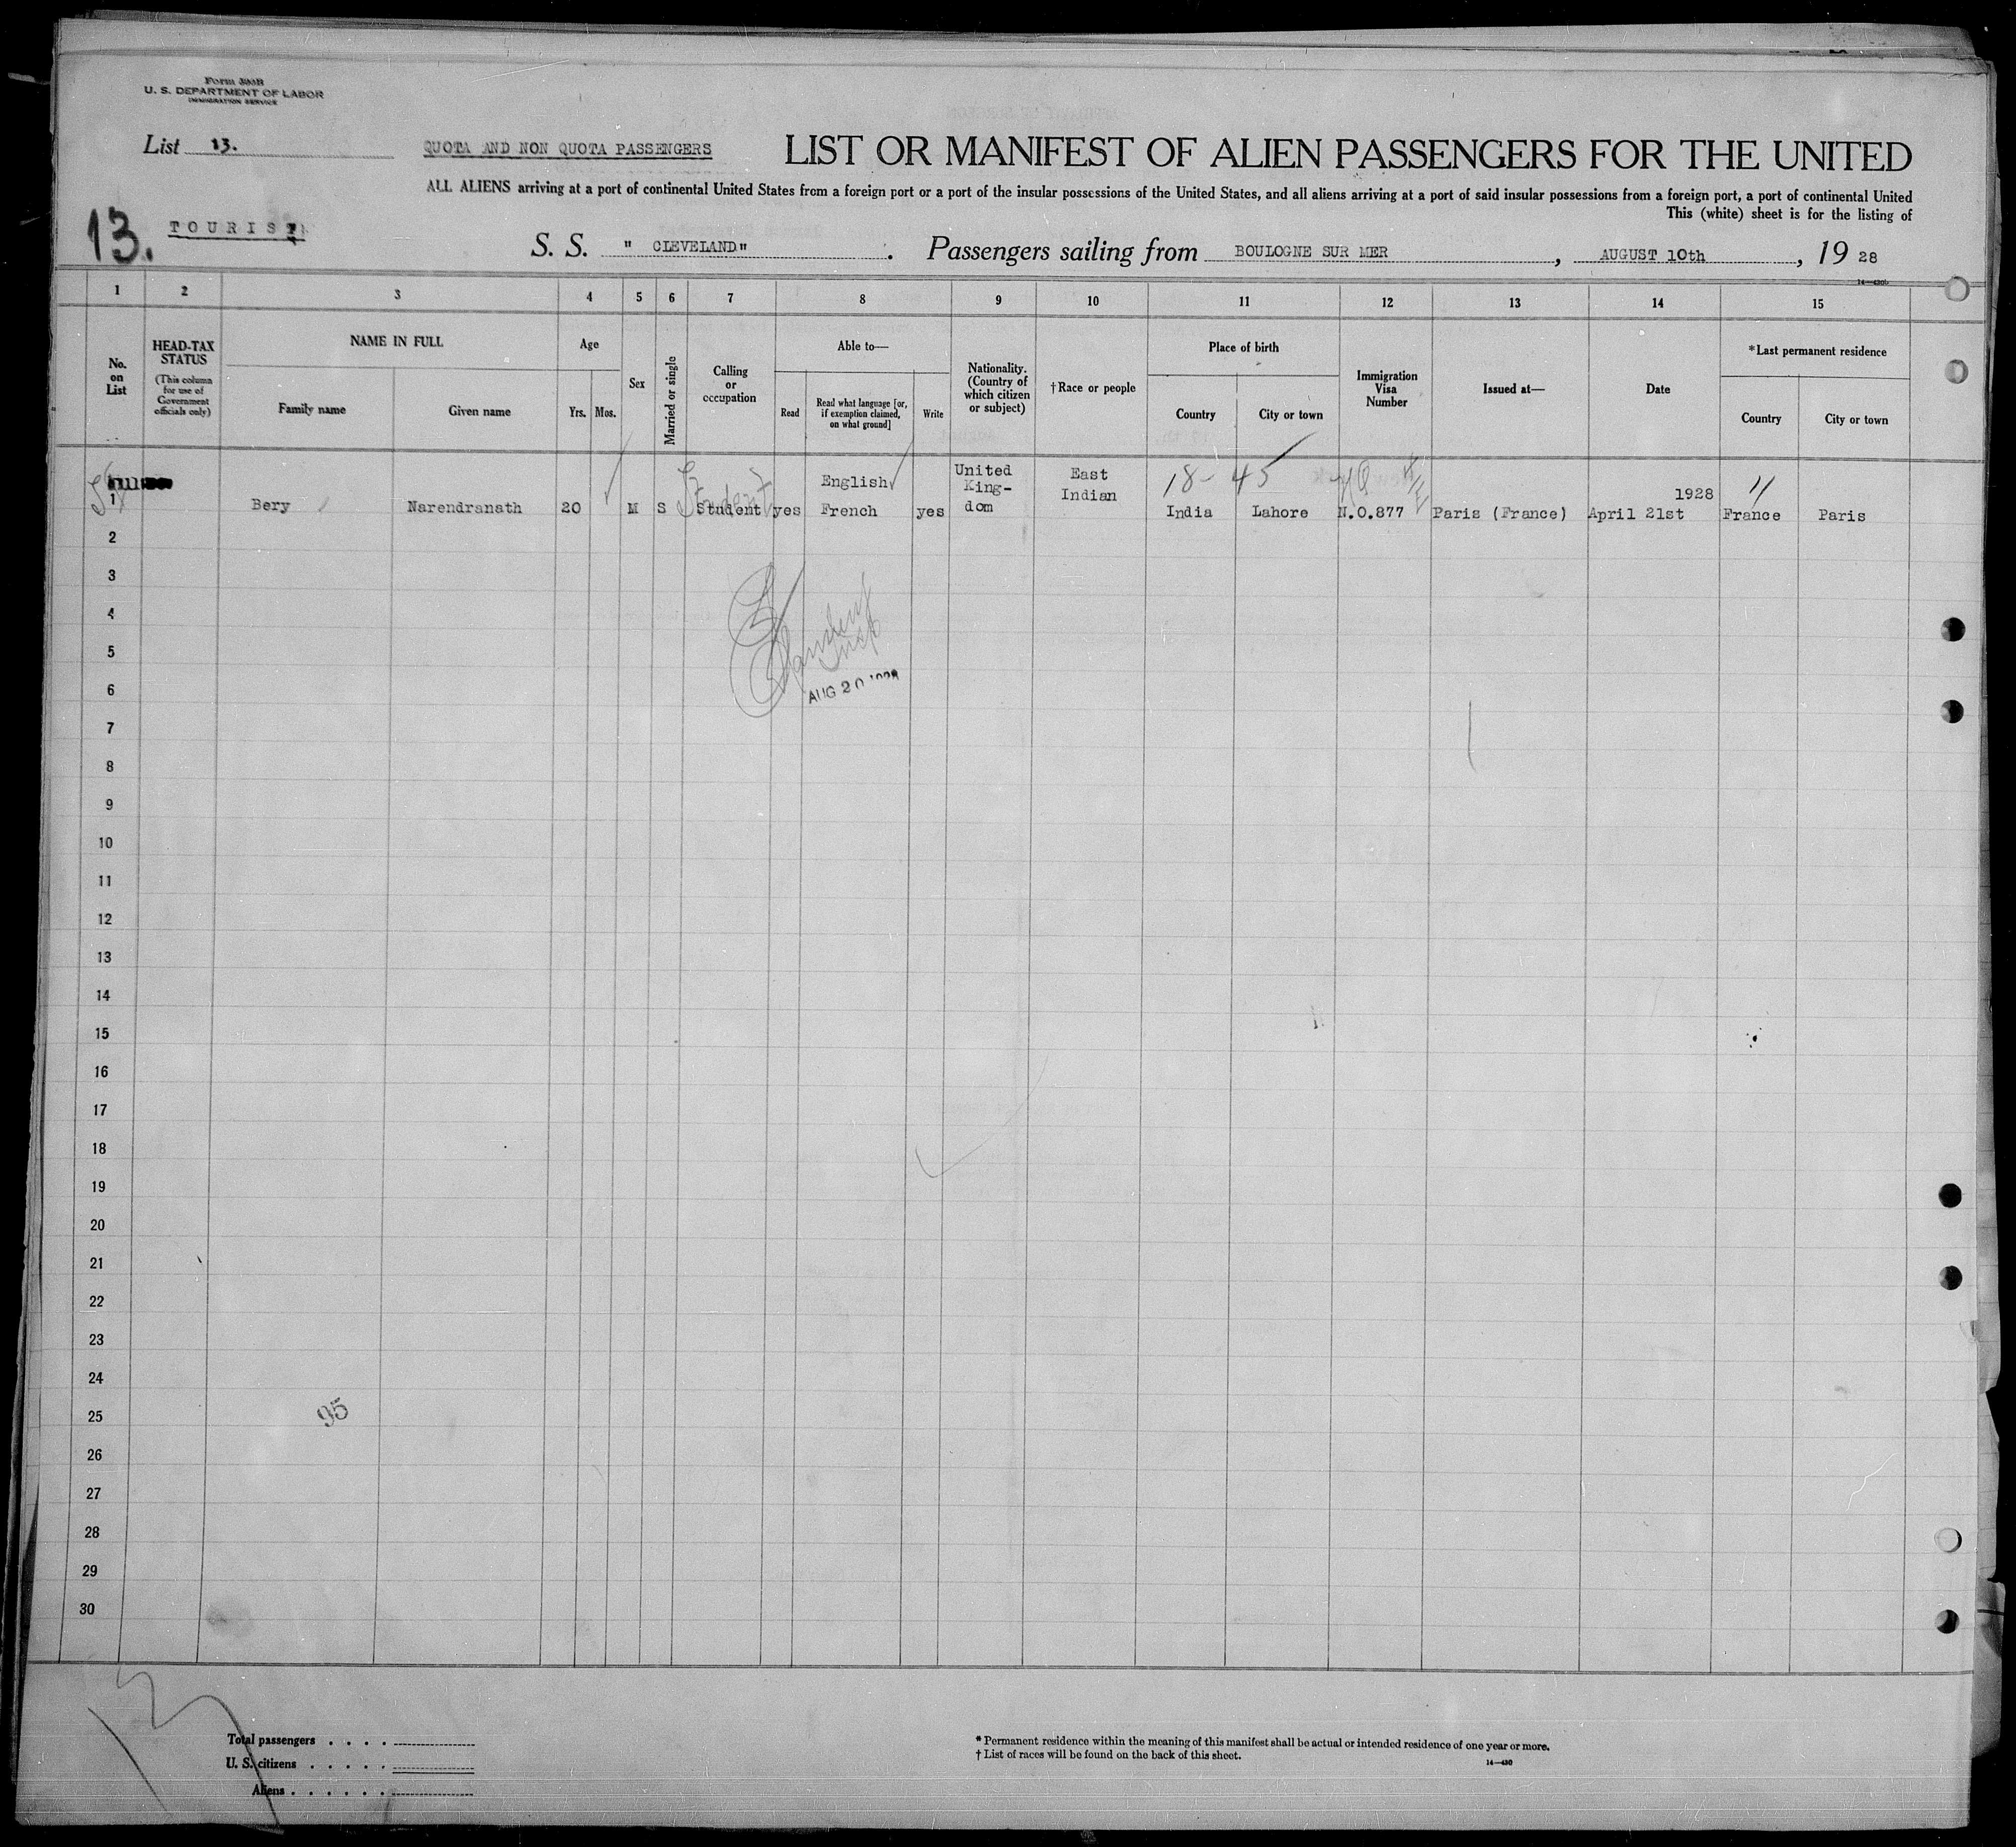 Form 500B
U. S. DEPARTMENT OF LABOR
IMMIGRATION SERVICE
List 13.
QUOTA AND NON QUOTA PASSENGERS
LIST OR MANIFEST OF ALIEN PASSENGERS FOR THE UNITED
ALL ALIENS arriving at a port of continental United States from a foreign port or a port of the insular possessions of the United States, and all aliens arriving at a port of said insular possessions from a foreign port, a port of continental United
This (white) sheet is for the listing of
13.
TOURIST
S. S. " CLEVELAND" . Passengers sailing from BOULOGNE SUR MER , AUGUST 10th , 19 28
1 2 3 4 5 6 7 8 9 10 11 12 13 14 15
No. on List
HEAD-TAX STATUS
(This column for use of Government officials only)
NAME IN FULL
Family name
Given name
Age
Yrs.
Mos.
Sex
Married or single
Calling or occupation
Able to—
Read
Read what language [or, if exemption claimed, on what ground]
Write
Nationality. (Country of which citizen or subject)
†Race or people
Place of birth
Country
City or town
Immigration Visa Number
Issued at—
Date
*Last permanent residence
Country
City or town
1 Bery Narendranath 20 M S Student yes English French yes United King- dom East Indian India Lahore N.O.877 Paris (France) April 21st 1928 France Paris
Student
18- 45
2
3
4
5
6
AUG 20 1928
7
8
9
10
11
12
13
14
15
16
17
18
19
20
21
22
23
24
25
95
26
27
28
29
30
Total passengers . . . .
U. S. citizens . . . . .
Aliens . . . . . .
* Permanent residence within the meaning of this manifest shall be actual or intended residence of one year or more.
† List of races will be found on the back of this sheet.
14—430